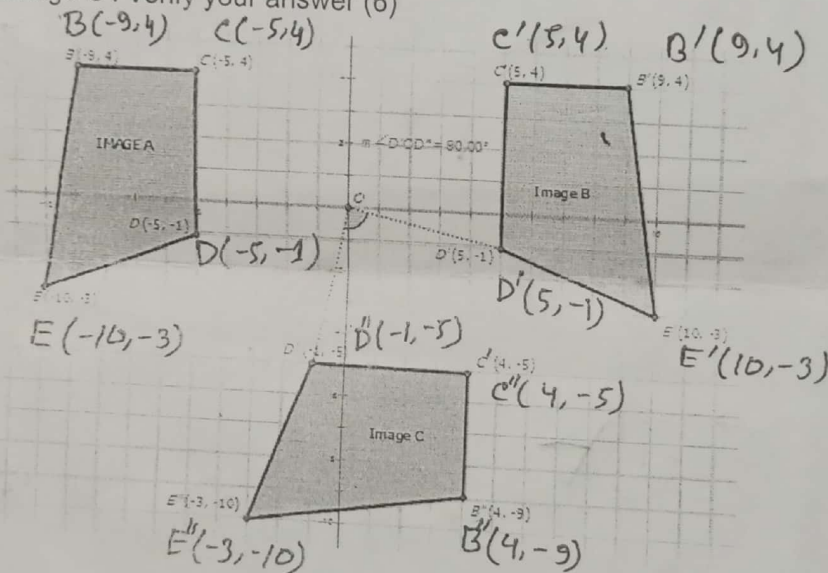 verify your answer (6)
B(-9,4) C(-5,4) C'(5,4) B'(9,4)
B(-9, 4) C(-5, 4) C'(5, 4) B'(9, 4)
IMAGE A
m∠D'OD"= 90.00°
Image B
O
D(-5, -1)
D(-5,-1)
D'(5, -1)
D'(5,-1)
E(-10, -3)
E(-10,-3)
E'(10, -3)
E'(10,-3)
D"(-1, -5)
D"(-1,-5)
C"(4, -5)
C"(4,-5)
Image C
E"(-3, -10)
E"(-3,-10)
B"(4, -9)
B"(4,-9)